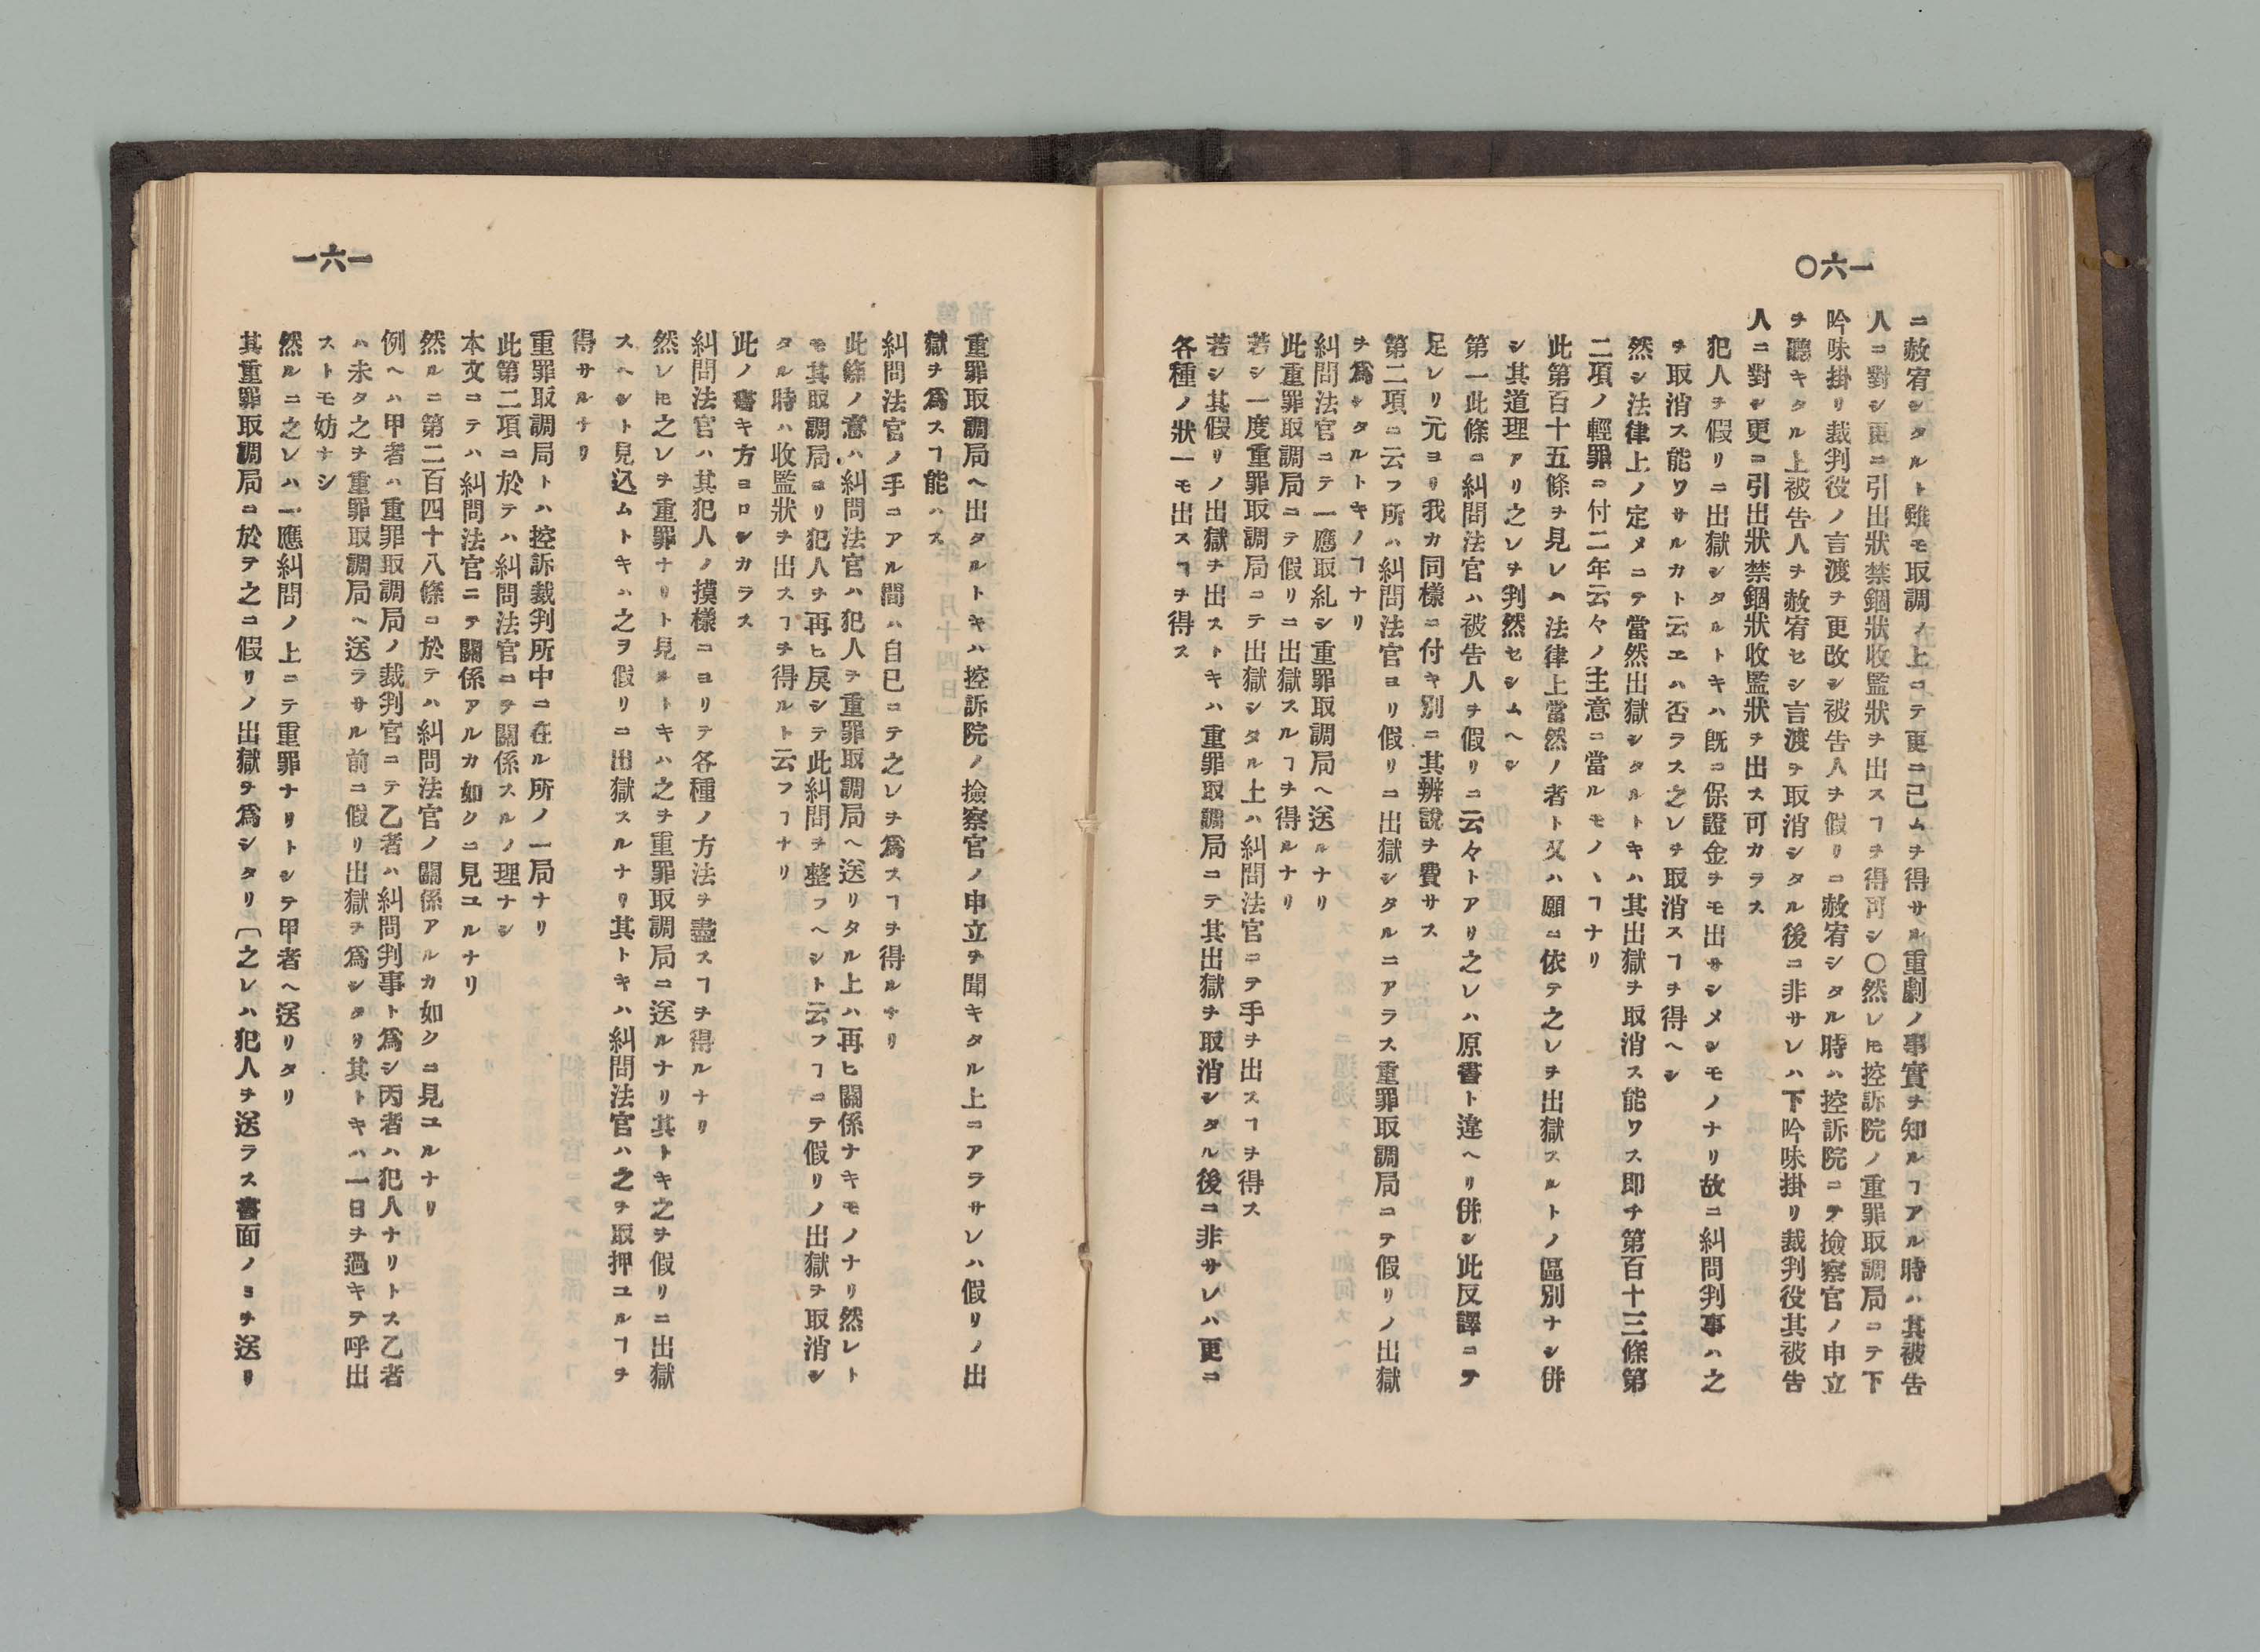 一六〇
ニ赦宥シタルト雖モ取調ノ上ニテ更ニ已ムヲ得サル重劇ノ事實ヲ知ルヿアル時ハ其被告
人ニ對シ更ニ引出狀禁錮狀收監狀ヲ出スヿヲ得可シ〇然レ𪜈控訴院ノ重罪取調局ニテ下
吟味掛リ裁判役ノ言渡ヲ更改シ被告人ヲ假リニ赦宥シタル時ハ控訴院ニテ撿察官ノ申立
ヲ聽キタル上被告人ヲ赦宥セシ言渡ヲ取消シタル後ニ非サレハ下吟味掛リ裁判役其被告
人ニ對シ更ニ引出狀禁錮狀收監狀ヲ出ス可カラス
犯人ヲ假リニ出獄シタルトキハ既ニ保證金ヲモ出サシメシモノナリ故ニ糾問判事ハ之
ヲ取消ス能ワサルカト云エハ否ラス之レヲ取消スヿヲ得ヘシ
然シ法律上ノ定メニテ當然出獄シタルトキハ其出獄ヲ取消ス能ワス即チ第百十三條第
二項ノ輕罪ニ付二年云々ノ主意ニ當ルモノヽヿナリ
此第百十五條ヲ見レハ法律上當然ノ者ト又ハ願ニ依テ之レヲ出獄スルトノ區別ナシ併
シ其道理アリ之レヲ判然セシムヘシ
第一此條ニ糾問法官ハ被告人ヲ假リニ云々トアリ之レハ原書ト違ヘリ併シ此反譯ニテ
足レリ元ヨリ我カ同樣ニ付キ別ニ其辨說ヲ費サス
第二項ニ云フ所ハ糾問法官ヨリ假リニ出獄シタルニアラス重罪取調局ニテ假リノ出獄
ヲ爲シタルトキノヿナリ
糾問法官ニテ一應取糺シ重罪取調局ヘ送ルナリ
此重罪取調局ニテ假リニ出獄スルヿヲ得ルナリ
若シ一度重罪取調局ニテ出獄シタル上ハ糾問法官ニテ手ヲ出スヿヲ得ス
若シ其假リノ出獄ヲ出ストキハ重罪取調局ニテ其出獄ヲ取消シタル後ニ非サレハ更ニ
各種ノ狀一モ出スヿヲ得ス
一六一
重罪取調局ヘ出タルトキハ控訴院ノ撿察官ノ申立ヲ聞キタル上ニアラサレハ假リノ出
獄ヲ爲スヿ能ハス
糾問法官ノ手ニアル間ハ自已ニテ之レヲ爲スヿヲ得ルナリ
此條ノ意ハ糾問法官ハ犯人ヲ重罪取調局ヘ送リタル上ハ再ヒ關係ナキモノナリ然レト
モ其取調局ヨリ犯人ヲ再ヒ戾シテ此糾問ヲ整フヘシト云フヿニテ假リノ出獄ヲ取消シ
タル時ハ收監狀ヲ出スヿヲ得ルト云フヿナリ
此ノ書キ方ヨロシカラス
糾問法官ハ其犯人ノ摸樣ニヨリテ各種ノ方法ヲ盡スヿヲ得ルナリ
然レ𪜈之レヲ重罪ナリト見ルトキハ之ヲ重罪取調局ニ送ルナリ其トキ之ヲ假リニ出獄
スヘシト見込ムトキハ之ヲ假リニ出獄スルナリ其トキハ糾問法官ハ之ヲ取押ユルヿヲ
得サルナリ
重罪取調局トハ控訴裁判所中ニ在ル所ノ一局ナリ
此第二項ニ於テハ糾問法官ニテ關係スルノ理ナシ
本文ニテハ糾問法官ニテ關係アルカ如クニ見ユルナリ
然ルニ第二百四十八條ニ於テハ糾問法官ノ關係アルカ如クニ見ユルナリ
例ヘハ甲者ハ重罪取調局ノ裁判官ニテ乙者ハ糾問判事ト爲シ丙者ハ犯人ナリトス乙者
ハ未タ之ヲ重罪取調局ヘ送ラサル前ニ假リ出獄ヲ爲シタリ其トキハ一日ヲ過キテ呼出
ストモ妨ナシ
然ルニ之レハ一應糾問ノ上ニテ重罪ナリトシテ甲者ヘ送リタリ
其重罪取調局ニ於テ之ニ假リノ出獄ヲ爲シタリ〔之レハ犯人ヲ送ラス書面ノミヲ送リ